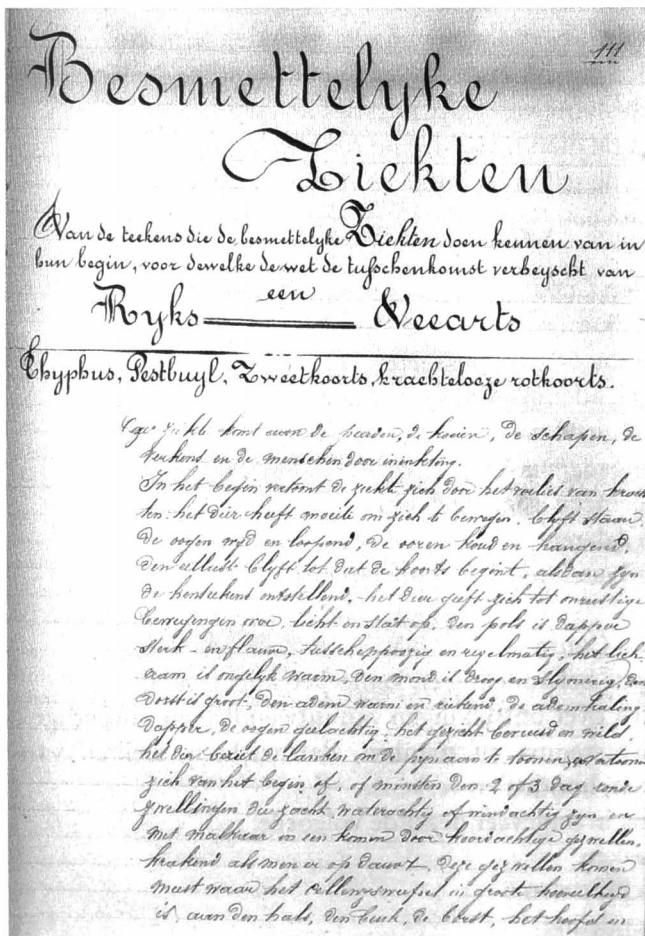 111
Besmettelyke
Ziekten
Van de teekens die de besmettelyke Ziekten doen kennen van in
hun begin, voor dewelke de wet de tusschenkomst verheyscht van
een
Ryks Veearts
Thyphus, Pestbuyl, Zweetkoorts, krachtelooze rotkoorts.
ziekte komt aan de paarden, de koeien, de schapen, de
verkens en de menschen door
In het begin vertoont de ziekte zich door het verlies van krach
ten: het dier heeft moeite om zich te bewegen, blyft staan,
de oogen en loopend, de ooren koud en hangend,
den blyft tot dat de koorts begint, alsdan zyn
de kenteekens ontstellend, het dier geeft zich tot onrustige
bewegingen over, ligt en staat op, den pols is dapper
sterk en flauw, tusschenpoozig en regelmatig, het lich
aam is ongelyk warm, den mond is droog en slymerig, den
dorst is groot, den adem warm en riekend, de ademhaling
dapper, de oogen geelachtig, het gezicht en wild,
het dier beziet de lanken om de pyn aan te toonen,
zich van het begin of, of minsten den 2 of 3 dag ronde
zwellingen die zacht, waterachtig of windachtig zyn en
met malkaar in een komen door koordachtige gezwellen,
krakend als men er op dauwt. Deze gezwellen komen
meest waar het in groote hoeveelheid
is, aan den hals, den buik, de borst, het hoofd en